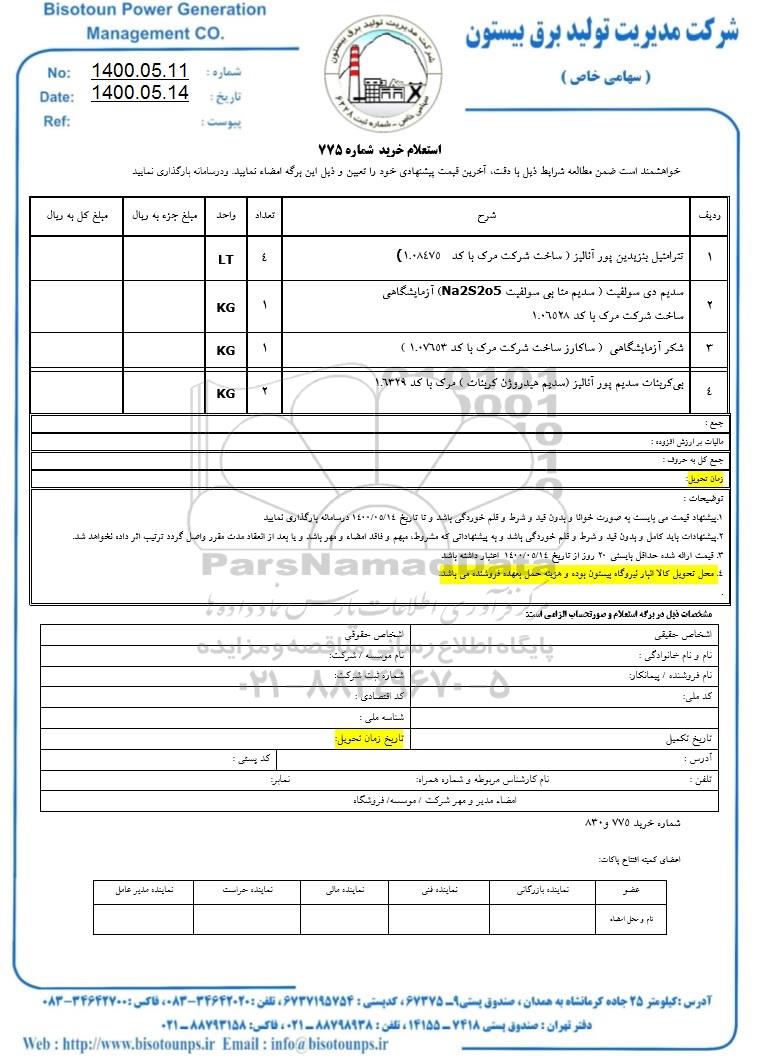 Bisotoun Power Generation
Management CO.
شرکت مدیریت تولید برق بیستون
( سهامی خاص )
No: 1400.05.11 شماره :
Date: 1400.05.14 تاریخ :
Ref: پیوست :
شرکت مدیریت تولید برق بیستون
سهامی خاص - شماره ثبت ۶۲۲۸
استعلام خرید شماره ۷۷۵
خواهشمند است ضمن مطالعه شرایط ذیل با دقت، آخرین قیمت پیشنهادی خود را تعیین و ذیل این برگه امضاء نمایید. ودرسامانه بارگذاری نمایید
ردیف شرح تعداد واحد مبلغ جزء به ریال مبلغ کل به ریال
۱ تترامتیل بنزیدین پور آنالیز ( ساخت شرکت مرک با کد ۱.۰۸٤۷۵) ٤ LT
۲ سدیم دی سولفیت ( سدیم متا بی سولفیت Na2S2o5) آزمایشگاهی
ساخت شرکت مرک با کد ۱.۰٦۵۲۸ ۱ KG
۳ شکر آزمایشگاهی ( ساکارز ساخت شرکت مرک با کد ۱.۰۷٦۵۳ ) ۱ KG
٤ بی‌کربنات سدیم پور آنالیز (سدیم هیدروژن کربنات ) مرک با کد ۱.٦۳۲۹ ۲ KG
جمع :
مالیات بر ارزش افزوده :
جمع کل به حروف :
زمان تحویل:
توضیحات :
۱.پیشنهاد قیمت می بایست به صورت خوانا و بدون قید و شرط و قلم خوردگی باشد و تا تاریخ ۱٤۰۰/۰۵/۱٤ درسامانه بارگذاری نمایید
۲.پیشنهادات باید کامل و بدون قید و شرط و قلم خوردگی باشد و به پیشنهاداتی که مشروط، مبهم و فاقد امضاء و مهر باشد و یا بعد از انعقاد مدت مقرر واصل گردد ترتیب اثر داده نخواهد شد.
۳. قیمت ارائه شده حداقل بایستی ۲۰ روز از تاریخ ۱٤۰۰/۰۵/۱٤ اعتبار داشته باشد
٤. محل تحویل کالا انبار نیروگاه بیستون بوده و هزینه حمل بعهده فروشنده می باشد.
.
ParsNamadData
مرکز فرآوری اطلاعات پارس نماد داده ها
پایگاه اطلاع رسانی مناقصه و مزایده
۰۲۱-۸۸۳۴۹۶۷۰-۵
مشخصات ذیل در برگه استعلام و صورتحساب الزامی است:
اشخاص حقیقی اشخاص حقوقی
نام و نام خانوادگی : نام موسسه / شرکت:
نام فروشنده / پیمانکار: شماره ثبت شرکت:
کد ملی: کد اقتصادی :
شناسه ملی :
تاریخ تکمیل تاریخ زمان تحویل:
آدرس : کد پستی :
تلفن : نام کارشناس مربوطه و شماره همراه: نمابر:
امضاء مدیر و مهر شرکت / موسسه/ فروشگاه
شماره خرید ۷۷۵ و۸۳۰
اعضای کمیته افتتاح پاکات:
عضو نماینده بازرگانی نماینده فنی نماینده مالی نماینده حراست نماینده مدیر عامل
نام و محل امضاء
آدرس :کیلومتر ۲۵ جاده کرمانشاه به همدان ، صندوق پستی۹ـ۶۷۳۷۵ ، کدپستی : ۶۷۳۷۱۹۵۷۵۴ ، تلفن : ۳۴۶۴۲۰۲۰-۰۸۳ ، فاکس : ۳۴۶۴۲۷۰۰-۰۸۳
دفتر تهران : صندوق پستی ۷۴۱۸ ـ ۱۴۱۵۵ ، تلفن : ۸۸۷۹۸۹۳۸ ـ ۰۲۱ ، فاکس: ۸۸۷۹۳۱۵۸ ـ ۰۲۱
Web : http://www.bisotounps.ir Email : info@bisotounps.ir